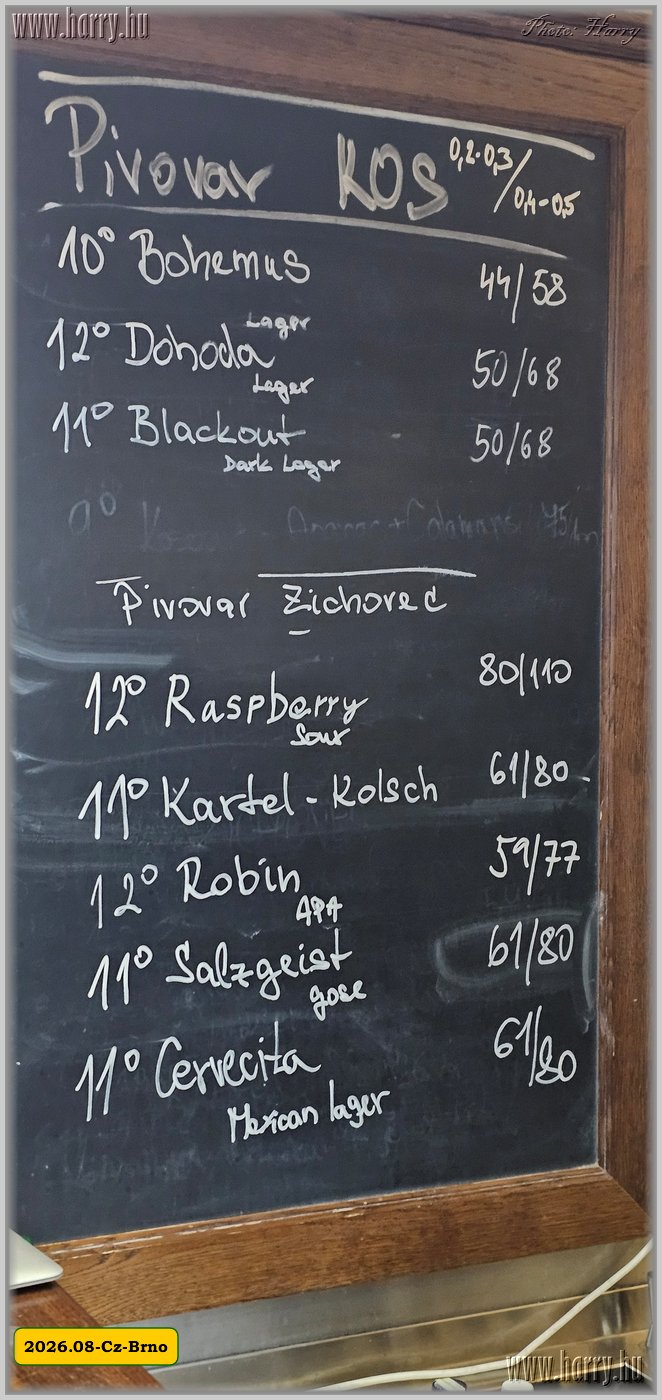 www.harry.hu
Photo: Harry
Pivovar KOS 0,2-0,3/0,4-0,5
10° Bohemus 44/58
Lager
12° Dohoda 50/68
Lager
11° Blackout 50/68
Dark Lager
Pivovar Zichovec
12° Raspberry 80/110
Sour
11° Kartel - Kolsch 61/80
12° Robin 59/77
APA
11° Salzgeist 61/80
gose
11° Cervecita 61/80
Mexican lager
2026.08-Cz-Brno
www.harry.hu